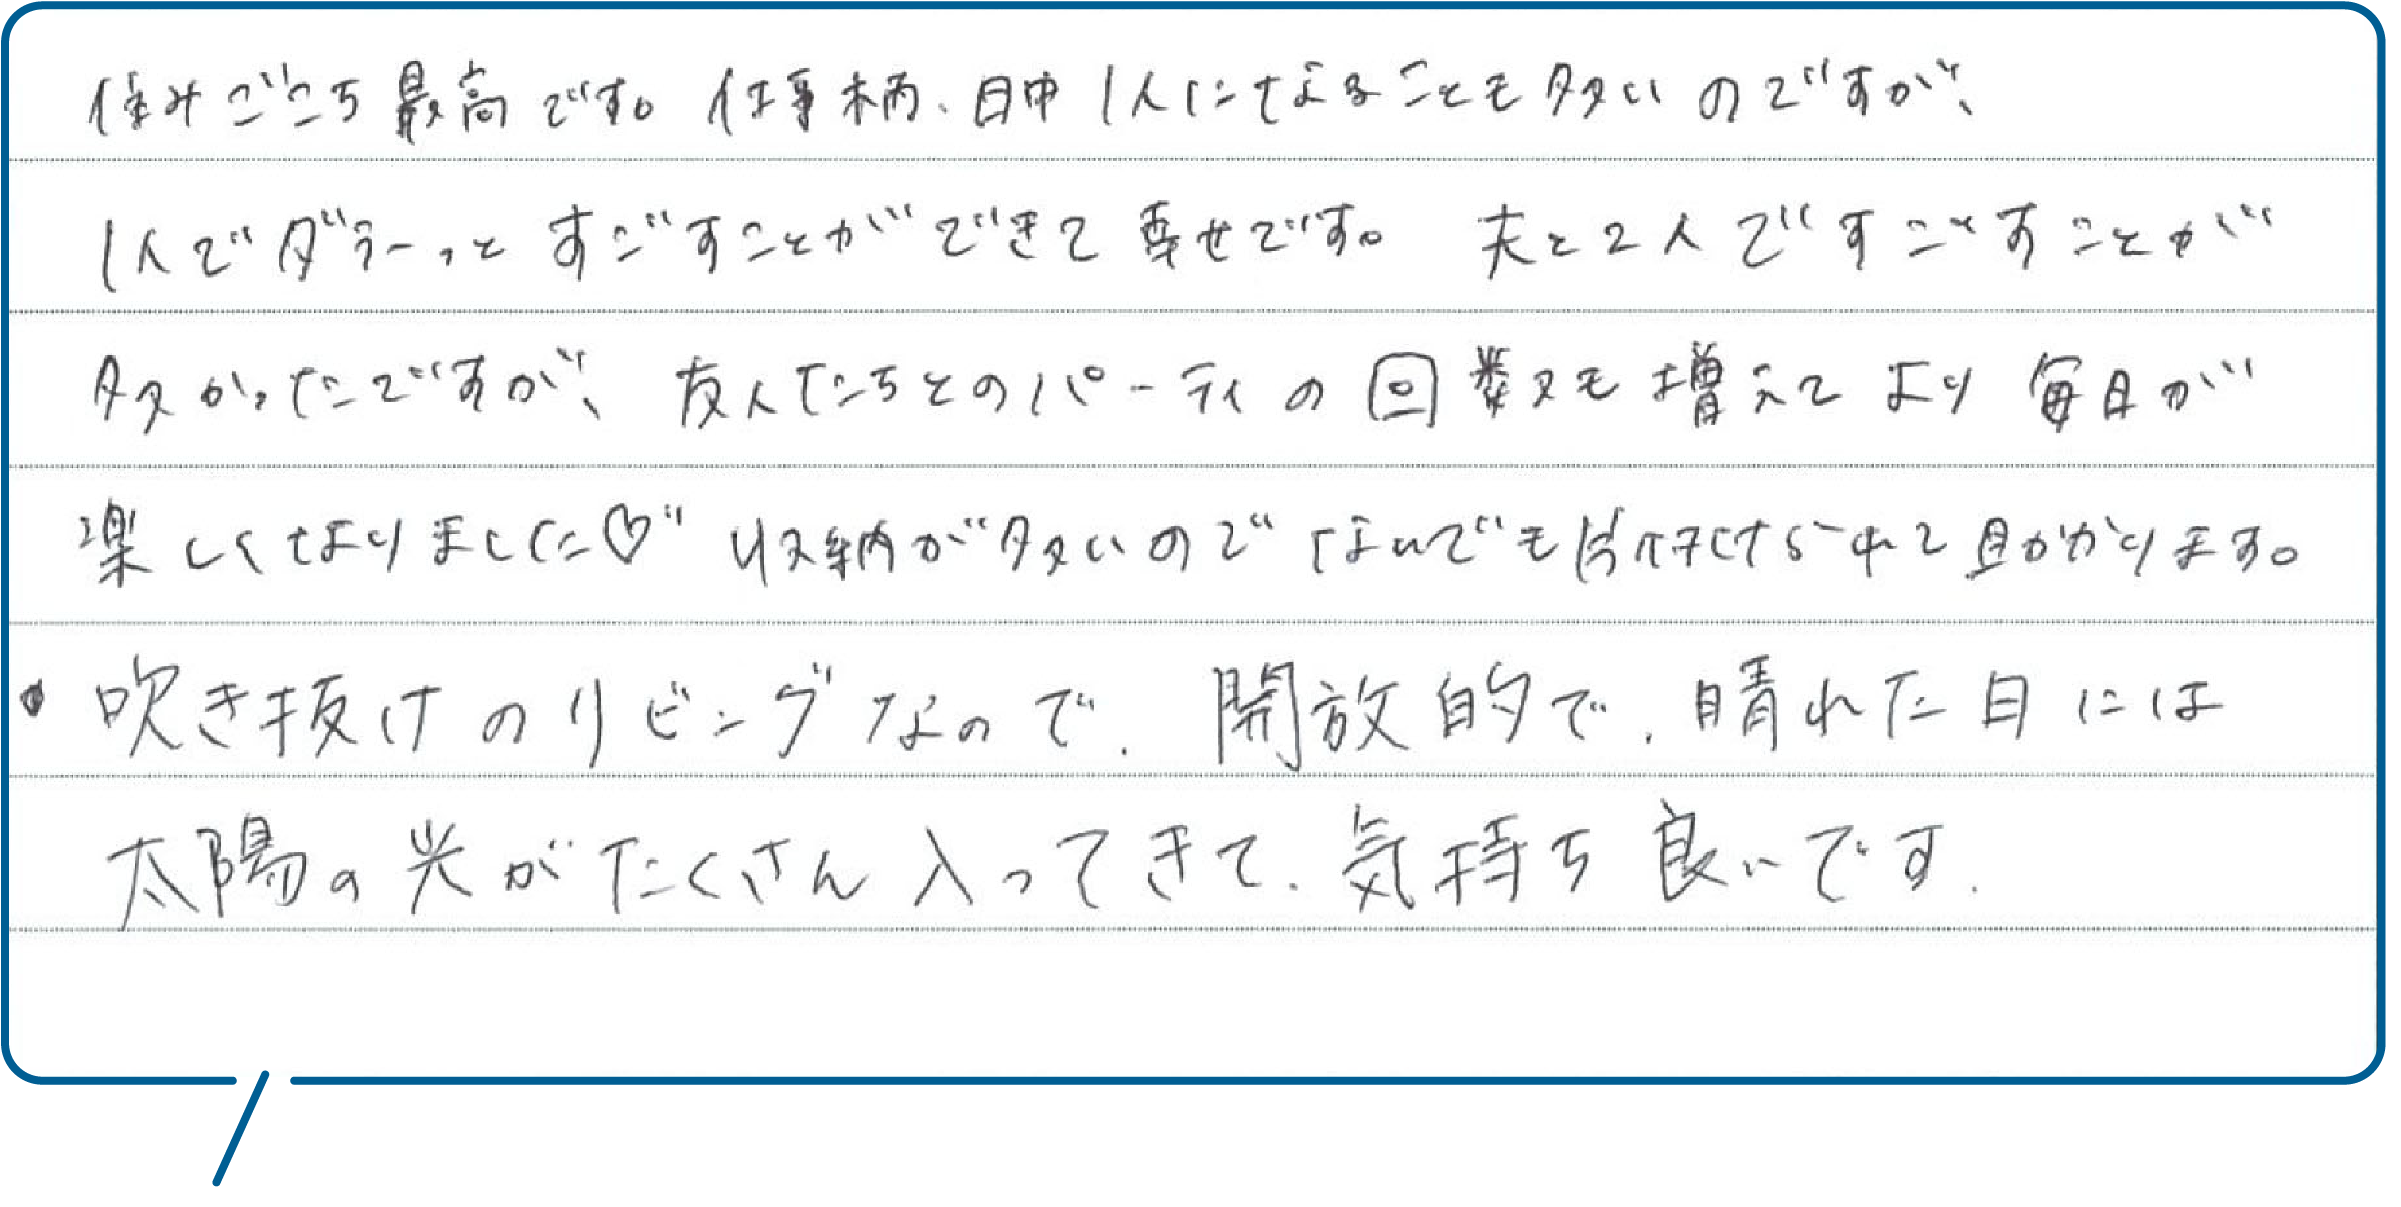 住みごこち最高です。仕事柄、日中1人になることも多いのですが、
1人でダラーっとすごすことができて幸せです。夫と2人ですごすことが
多かったですが、友人たちとのパーティの回数も増えてより毎日が
楽しくなりました♡ 収納が多いのでなんでも片付けられて助かります。
・吹き抜けのリビングなので、開放的で、晴れた日には
太陽の光がたくさん入ってきて、気持ち良いです.